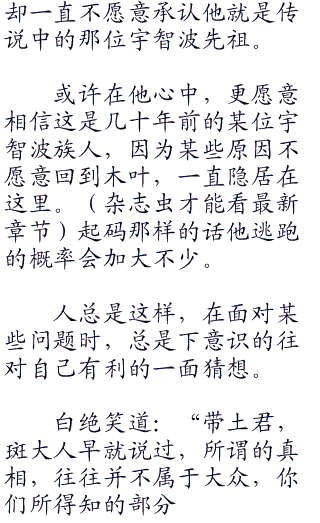 却一直不愿意承认他就是传
说中的那位宇智波先祖。
或许在他心中，更愿意
相信这是几十年前的某位宇
智波族人，因为某些原因不
愿意回到木叶，一直隐居在
这里。（杂志虫才能看最新
章节）起码那样的话他逃跑
的概率会加大不少。
人总是这样，在面对某
些问题时，总是下意识的往
对自己有利的一面猜想。
白绝笑道：“带土君，
斑大人早就说过，所谓的真
相，往往并不属于大众，你
们所得知的部分